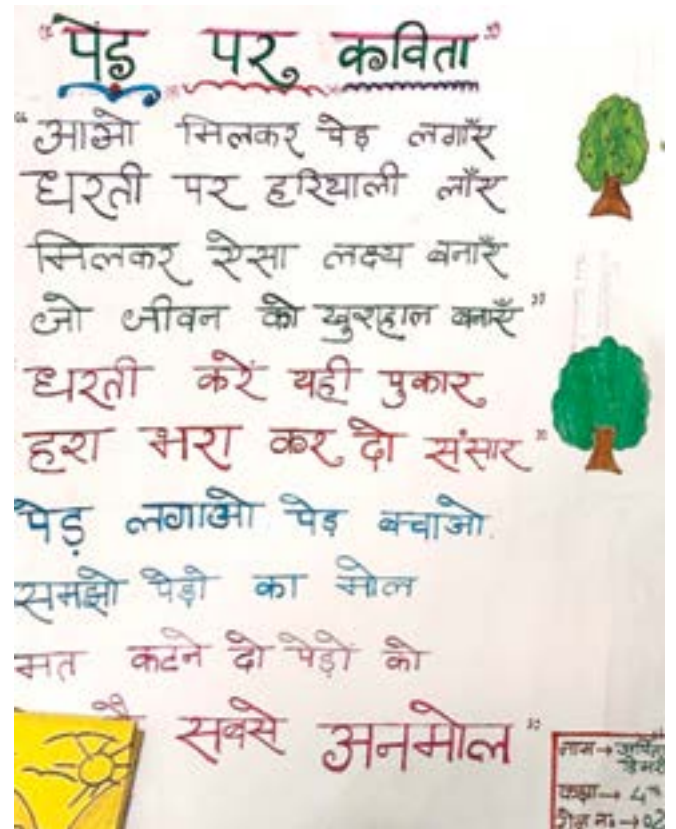 "पेड़ पर कविता"
"आओ मिलकर पेड़ लगाएँ
धरती पर हरियाली लाँए
मिलकर ऐसा लक्ष्य बनाएँ
जो जीवन को खुशहाल बनाएँ"
धरती करें यही पुकार
हरा भरा कर दो संसार"
पेड़ लगाओ पेड़ बचाओ
समझो पेड़ो का मोल
मत कटने दो पेड़ों को
सबसे अनमोल"
नाम→
कक्षा→ 4th
रोल नं→